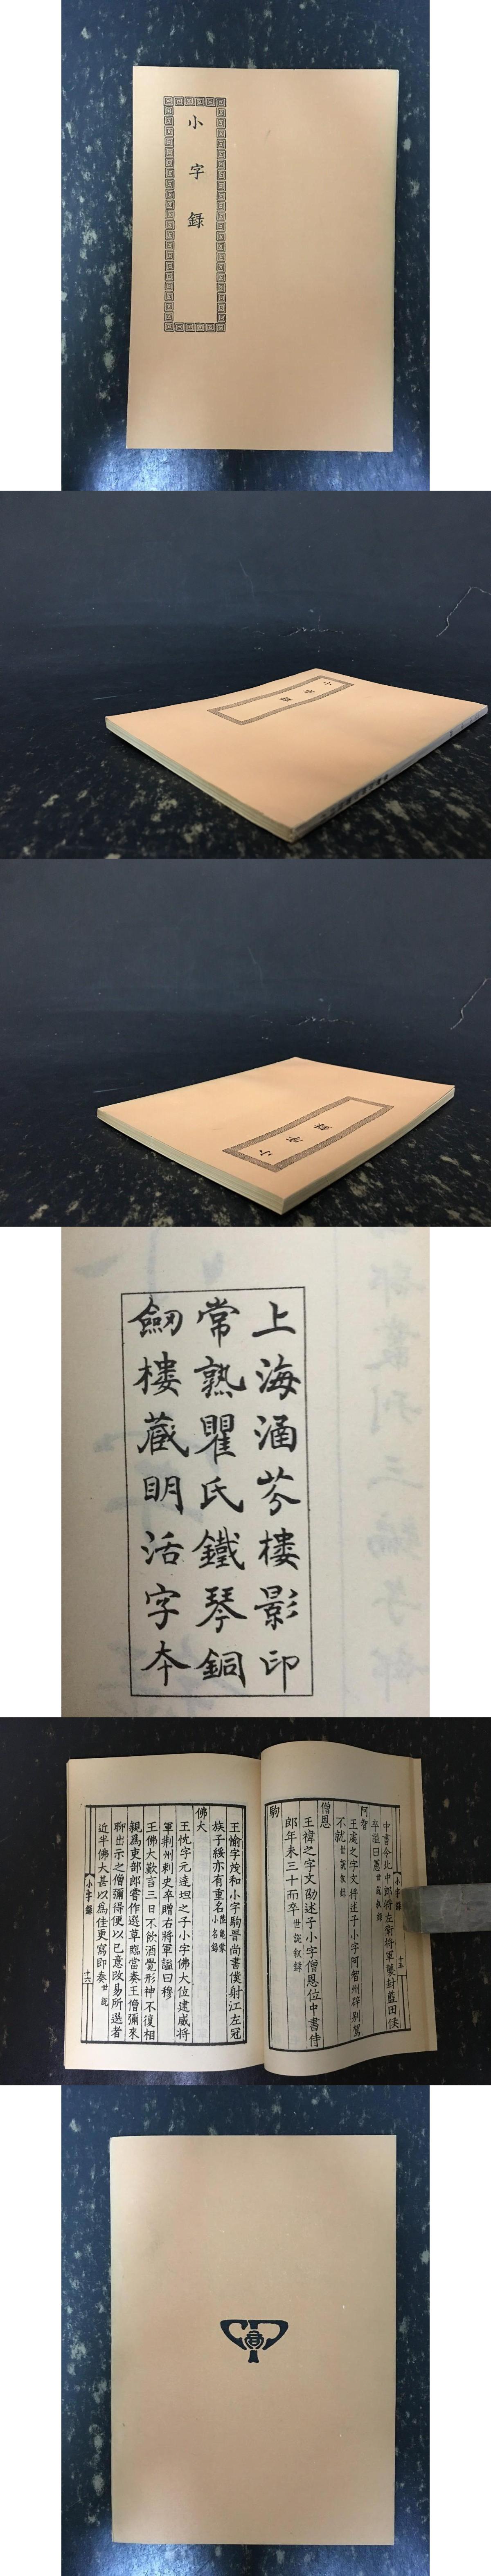 小字録
小字録
小字録
上海涵芬樓影印
常熟瞿氏鐵琴銅
劒樓藏明活字本
中書令北中郎將左衛將軍襲封藍田侯
卒謚曰憲世說叙錄
阿智
王處之字文將述子小字阿智州辟别駕
不就世說叙錄
僧恩
王禕之字文劭述子小字僧恩位中書侍
郎年未三十而卒世說叙録
駒
小字錄
十五
王愉字茂和小字駒晉尚書僕射江左冠
族子綏亦有重名
小名録
佛大
王忱字元達坦之子小字佛大位建威將
軍荆州刺史卒贈右將軍謚曰穆
王佛大歎言三日不飲酒覺形神不復相
親爲吏部郎嘗作選草臨當奏王僧彌來
聊出示之僧彌得便以已意改易所選者
近半佛大甚以爲佳更寫即奏世說
小字錄
十六